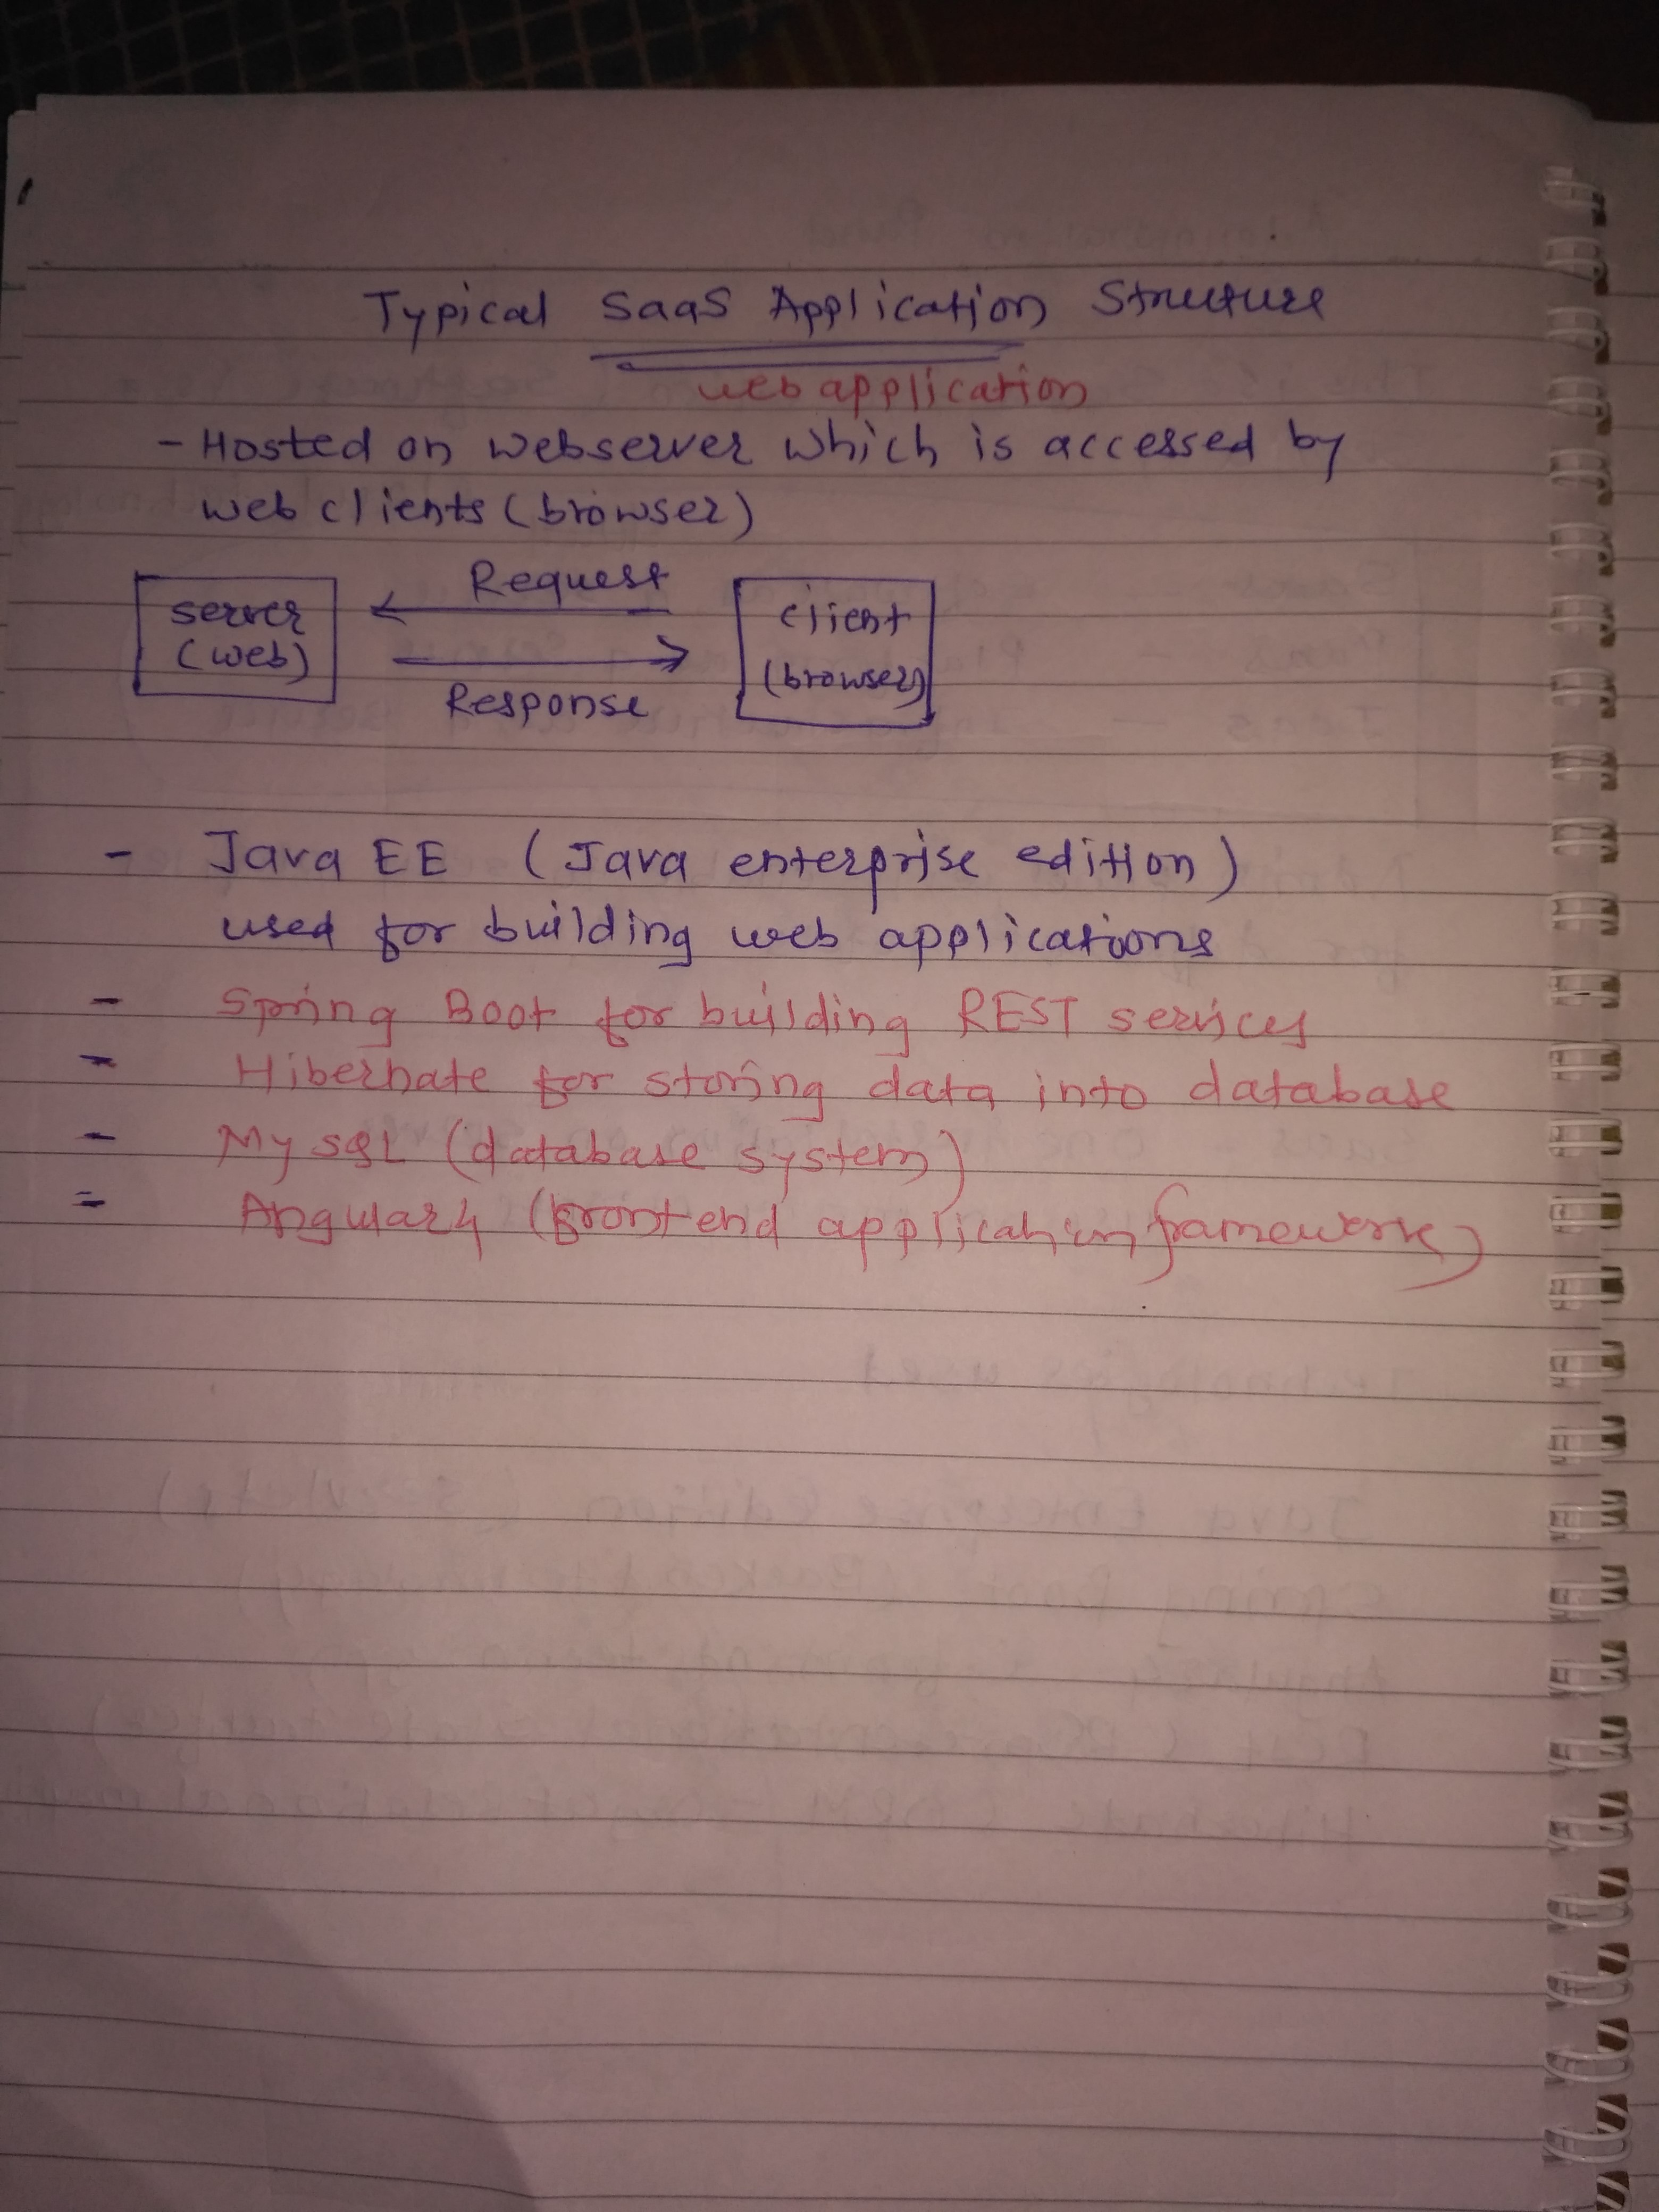 Typical SaaS Application Structure
web application
- Hosted on webserver which is accessed by
web clients (browser)
Request
server
(web)
client
(browser)
Response
- Java EE (Java enterprise edition)
used for building web applications
- Spring Boot for building REST services
- Hibernate for storing data into database
- My SQL (database system)
= Angular4 (frontend application framework)